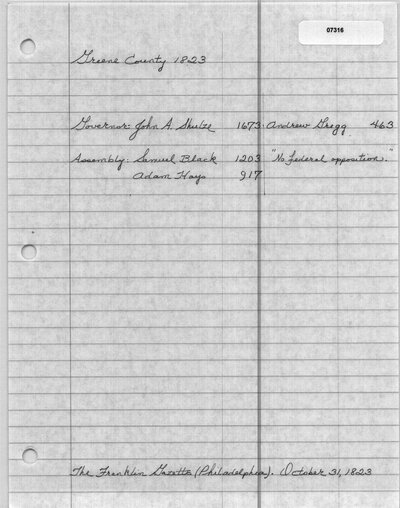 07316
Greene County 1823
Governor: John A. Shulze 1673 Andrew Gregg 463
Assembly: Samuel Black 1203 "No federal opposition."
Adam Hays 917
The Franklin Gazette (Philadelphia). October 31, 1823